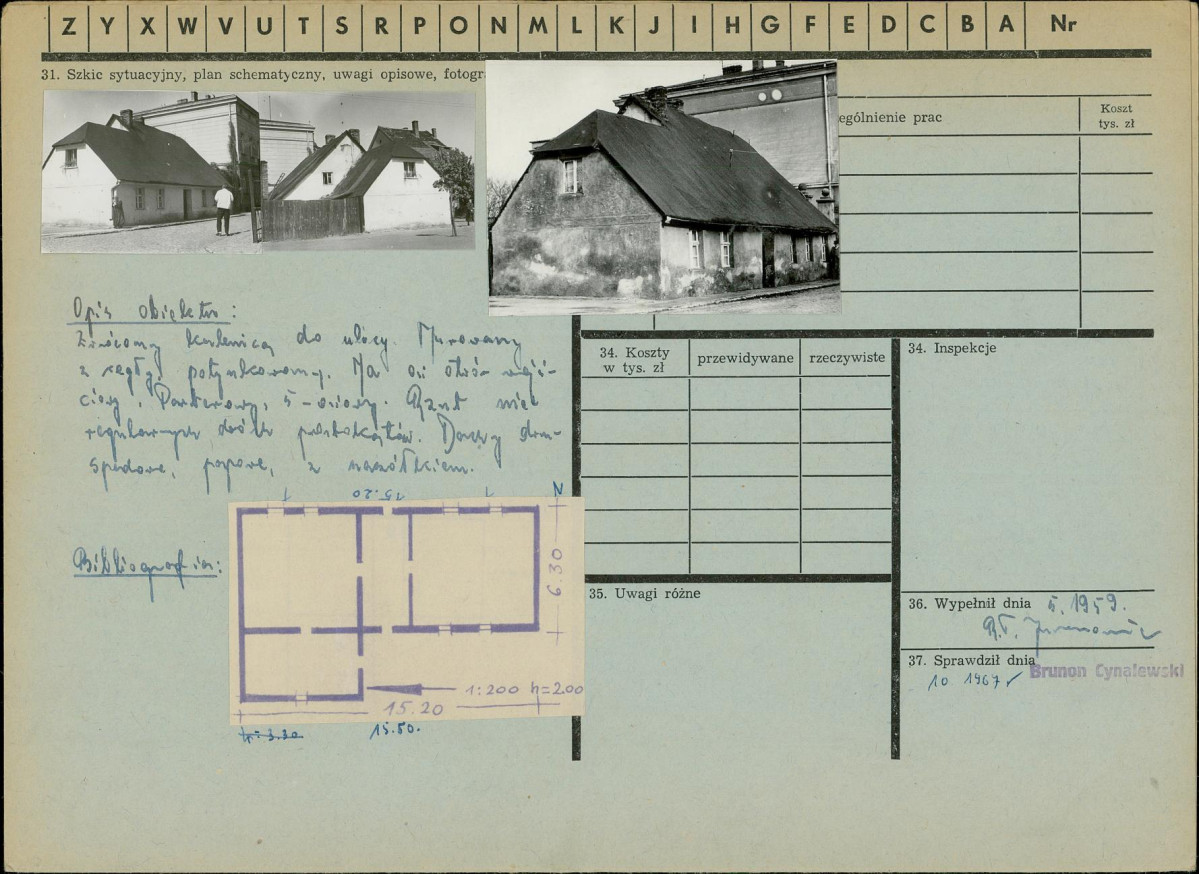 Z Y X W V U T S R P O N M Ł L K J I H G F E D C B A Nr
31. Szkic sytuacyjny, plan schematyczny, uwagi opisowe, fotogr
ególnienie prac
Koszt
tys. zł
Opis obiektu:
Zwrócony kalenicą do ulicy. Murowany
z cegły, potynkowany. Ma oś otwór wejś-
ciowy. Parterowy, 5-osiowy. Rzut nie
regularnych dwóch prostokątów. Dachy dwu-
spadowe, papowe, z naczółkiem.
15.20
N
6.30
1:200 h=2.00
15.20
h=3.30
15.50.
Bibliografia:
34. Koszty
w tys. zł
przewidywane
rzeczywiste
34. Inspekcje
35. Uwagi różne
36. Wypełnił dnia 5.1959.
37. Sprawdził dnia
10 1967
Brunon Cynalewski